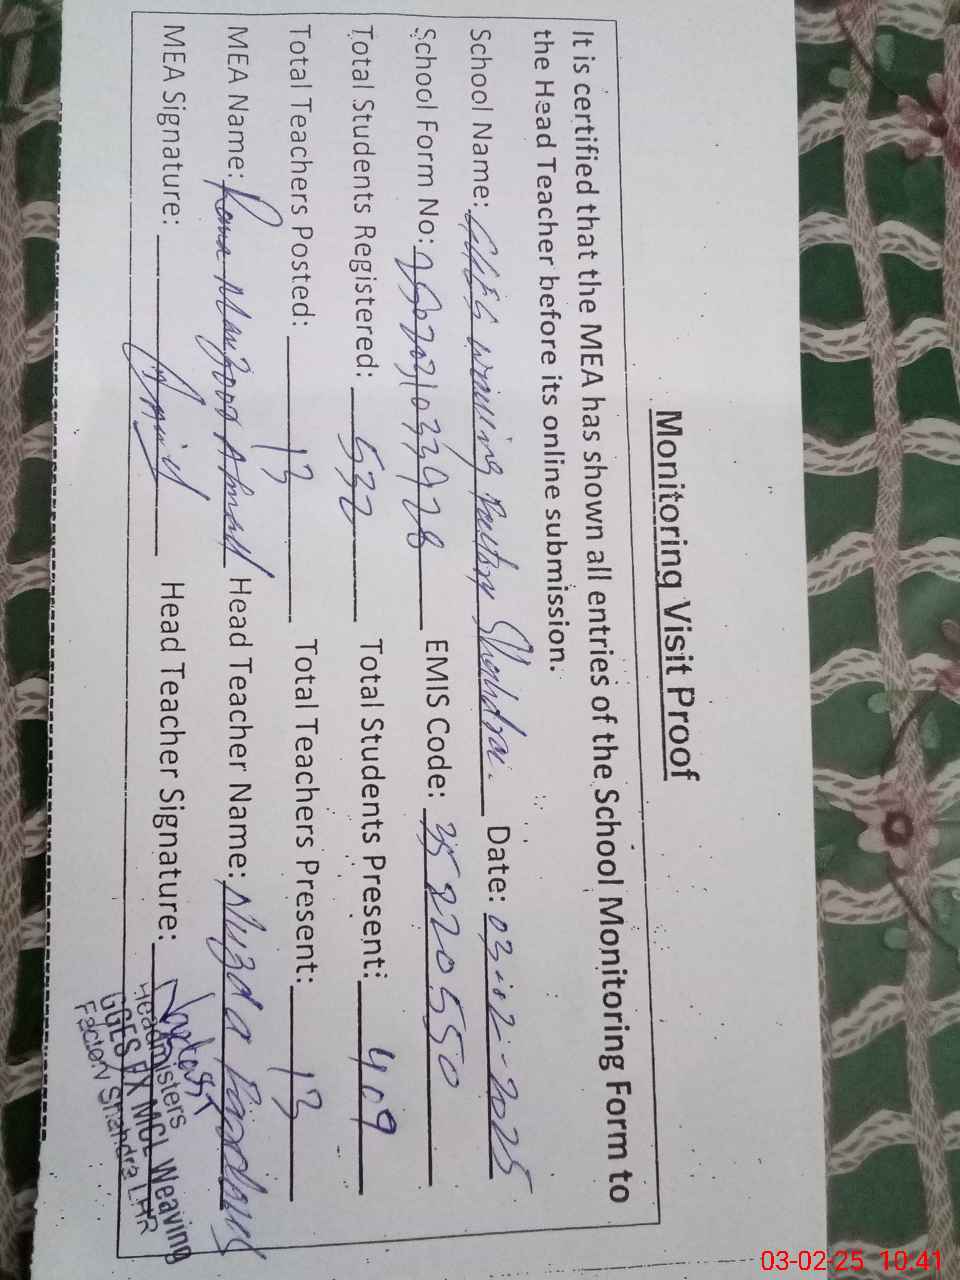 Monitoring Visit Proof
It is certified that the MEA has shown all entries of the School Monitoring Form to
the Head Teacher before its online submission.
School Name: Weaving Factory Shahdra. Date: 03-02-2025
School Form No: EMIS Code: 35220550
Total Students Registered: 532 Total Students Present: 409
Total Teachers Posted: 13 Total Teachers Present: 13
MEA Name: Rana Manzoor Ahmad Head Teacher Name:
MEA Signature: Head Teacher Signature:
Headmisters
GGES EX MCL Weaving
Factory Shahdra LHR
03-02-25 10:41